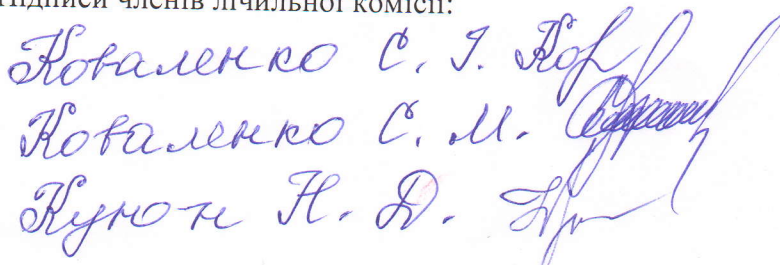 Підписи членів лічильної комісії:
Коваленко С. І.
Коваленко С. М.
Куюн Н. Д.